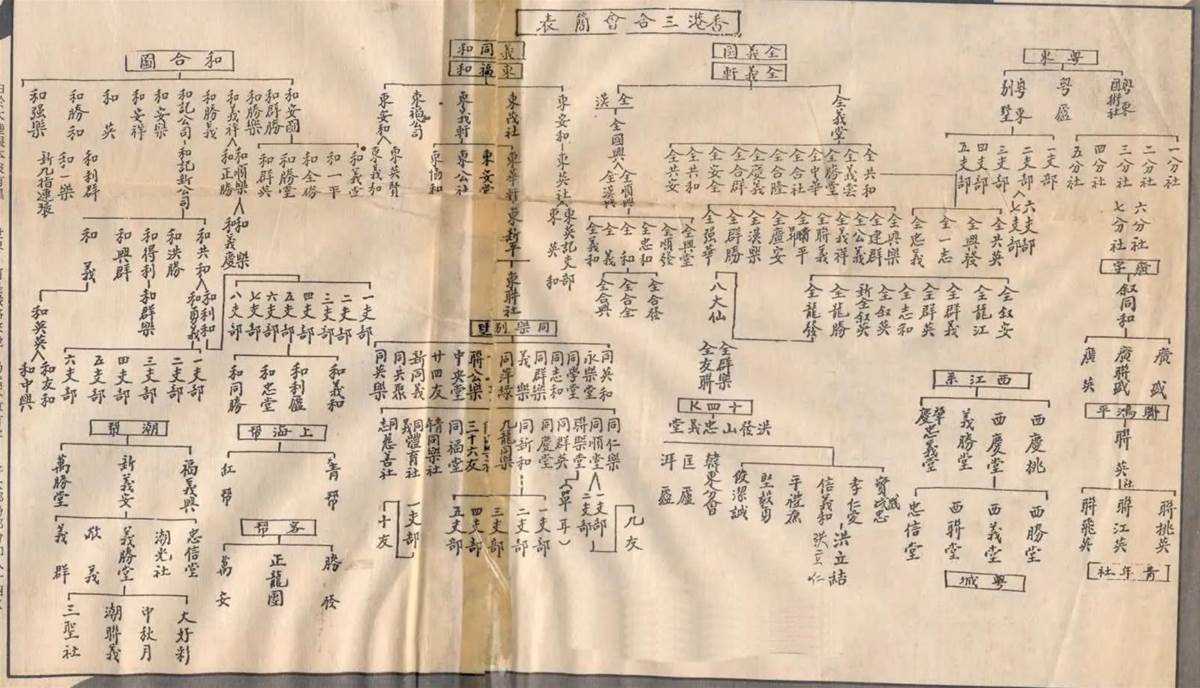 香港三合會簡表
粵東
粵東國術社
粵廬
粵東別墅
一分社
二分社
三分社
四分社
五分社
六分社
七分社
一支部
二支部
三支部
四支部
五支部
六支部
七支部
廣字
叙同和
廣盛
廣聯盛
廣英
聯鴻平
聯英社
聯挑英
聯江英
聯飛英
青年社
全義園
全義軒
全義堂
全漢
全國興
全順興
全漢興
全共和
全義雲
全勝堂
全中華
全合社
全合隆
全慶義
全合群
全安全
全共和
全共安
全興堂
全順發
全忠和
全和
全義
全義和
全合發
全合全
全合興
全樂興
全建群
全公義
全義祥
全聯義
全盧安
全漢樂
全群勝
全强華
八大仙
全共英
全興發
全一志
全忠義
全叙安
全龍江
全群義
全群英
全志和
全叙英
新全叙英
全龍勝
全龍發
全群樂
全友聯
十四K
洪發山忠義堂
孝仁愛
信義和
平禮廉
堅毅勇
儉潔誠
洪立結
匡廬
西江系
西慶挑
西慶堂
義勝堂
肇慶忠義堂
西勝堂
西義堂
西聯堂
忠信堂
粵城
義同和
東福和
東安和
東茂社
東義軒
東福公司
東安和
東英社
東華軒
東安堂
東公社
東協和
東英賢
東義和
東英記支部
東英和
東新軒
東聯社
同樂別墅
同英和
永樂堂
同學堂
同志和
同群樂
義樂
聯公樂
中央堂
廿四友
新同義
同共眾
同英樂
同仁樂
同順堂
聯樂堂
同群英
同慶堂
同新和
九龍同樂
三十六友
同福堂
情同樂社
義同體育社
同志慈善社
一支部
二支部
(單耳)
九友
一支部
二支部
三支部
四支部
五支部
一支部
十友
和合圖
和安圖
和群勝
和勝樂
和義祥
和勝義
和記公司
和安樂
和安祥
和英
和勝和
和强樂
和義堂
和一平
和全勝
和勝堂
和群英
和順樂
和正勝
和義慶
和記新公司
和利群
和一樂
新九指連環
和共和
和洪勝
和得利
和興群
和義
和利和
和勇義
和群樂
和英英
和友和
和中興
一支部
二支部
三支部
四支部
五支部
六支部
七支部
八支部
一支部
二支部
三支部
四支部
五支部
六支部
和義和
和利盛
和忠堂
和同勝
上海幫
青幫
紅幫
客幫
勝發
正龍團
萬安
潮幫
福義興
新義安
萬勝堂
忠信堂
潮光社
義勝堂
敬義
義群
大好彩
中秋月
潮聯義
三聖社